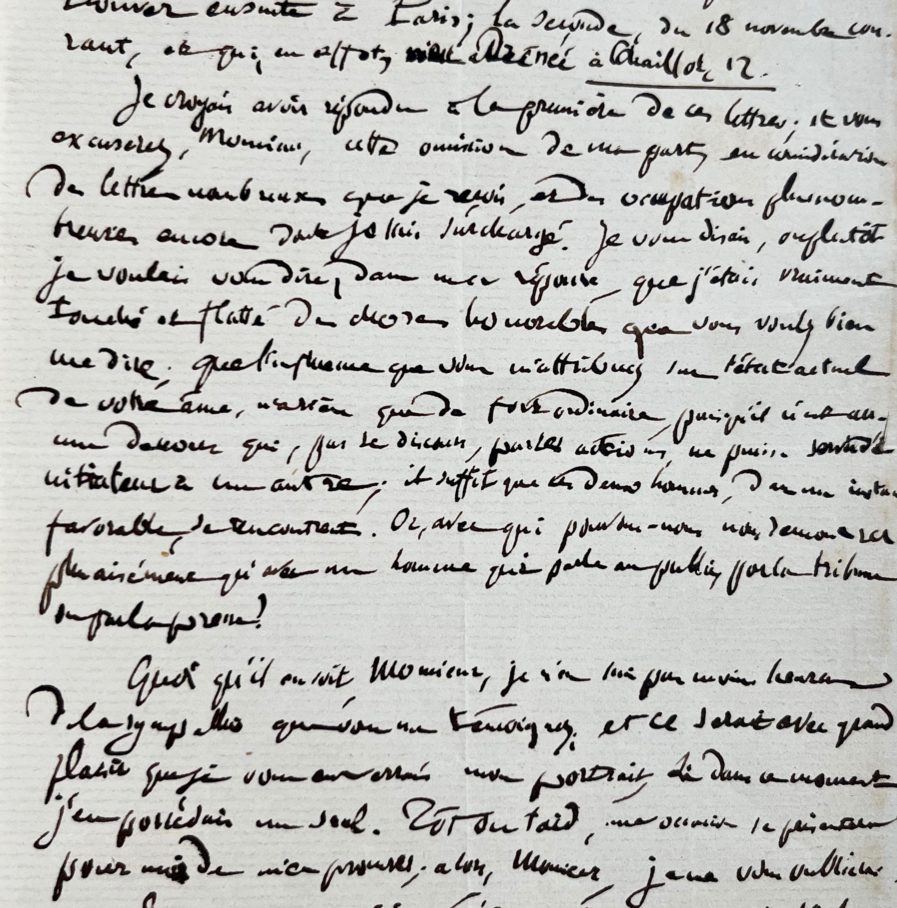 trouver ensuite à Paris; la seconde, du 18 novembre cou-
rant, et qui, en effet, m'est adressée à Chaillot, 12.
Je croyais avoir répondu à la première de ces lettres; et vous
excuserez, Monsieur, cette omission de ma part, en considération
des lettres nombreuses que je reçois, et des occupations plus nom-
breuses encore dont je suis surchargé. Je vous disais, ou plutôt
je voulais vous dire, dans ma réponse, que j'étais vraiment
touché et flatté des choses honorables que vous voulez bien
me dire; que l'influence que vous m'attribuez sur l'état actuel
de votre âme, n'a rien que de fort ordinaire, puisqu'il n'est au-
cun de nous qui, par ses discours, par ses actions, ne puisse servir d'i
nitiateur à un autre; il suffit que ces deux hommes, dans un instant
favorable, se rencontrent. Or, avec qui pouvons-nous nous rencontrer
plus aisément qu'avec un homme qui parle au public, par la tribune
ou par la presse?
Quoi qu'il en soit, Monsieur, je n'en suis pas moins heureux
de la sympathie que vous me témoignez, et ce serait avec grand
plaisir que je vous enverrais mon portrait, si dans ce moment
j'en possédais un seul. Tôt ou tard, une occasion se présentera
pour moi de m'en procurer; alors, Monsieur, je ne vous oublierai